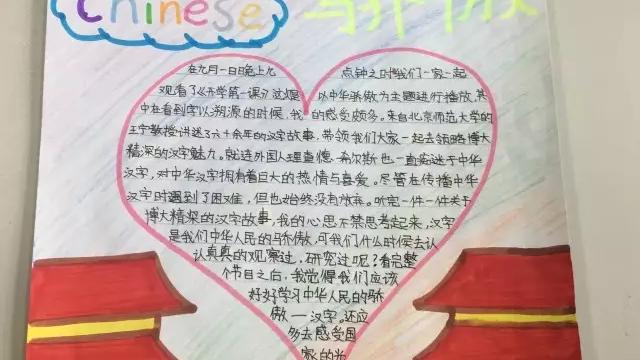 Chinese
在九月一日晚上九 点钟之时我们一家一起
观看了《开学第一课》这期 以中华骄傲为主题进行播放，其
中在看到字以溯源的时候，我的感受颇多。来自北京师范大学的
王宁教授讲述了六十余年的汉字故事，带领我们大家一起去领略博大
精深的汉字魅力。就连外国人理查德·希尔斯也一直痴迷于中华
汉字，对中华汉字拥有着巨大的热情与喜爱。尽管在传播中华
汉字时遇到了困难，但也始终没有放弃。听完一件一件关于
博大精深的汉字故事，我的心思不禁思考起来，汉字
是我们中华人民的骄傲，可我们什么时候去认
认真真的观察过，研究过呢？看完整
个节目之后，我觉得我们应该
好好学习中华人民的骄
傲—汉字。还应
多去感受国
家的